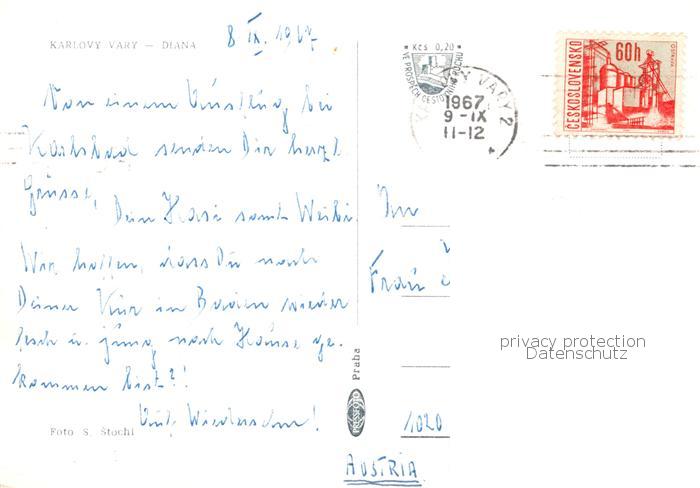 KARLOVY VARY — DIANA
8 IX. 1967
Kčs 0,20
VE PROSPĚCH CESTOVNÍHO RUCHU
VARY 2
1967
9 -IX
11-12
ČESKOSLOVENSKO
60h
OSTRAVA
Von einem Ausflug bei
Karlsbad senden Dir herzl.
Grüsse,
Dein Hasi samt Weibi.
Wir hoffen, dass Du nach
Deiner Kur in Baden wieder
fesch u. jung nach Hause ge-
kommen bist?!
Auf Wiedersehn!
An
Frau
1020
AUSTRIA
PRESSFOTO
Praha
Foto S. Štochl
privacy protection
Datenschutz